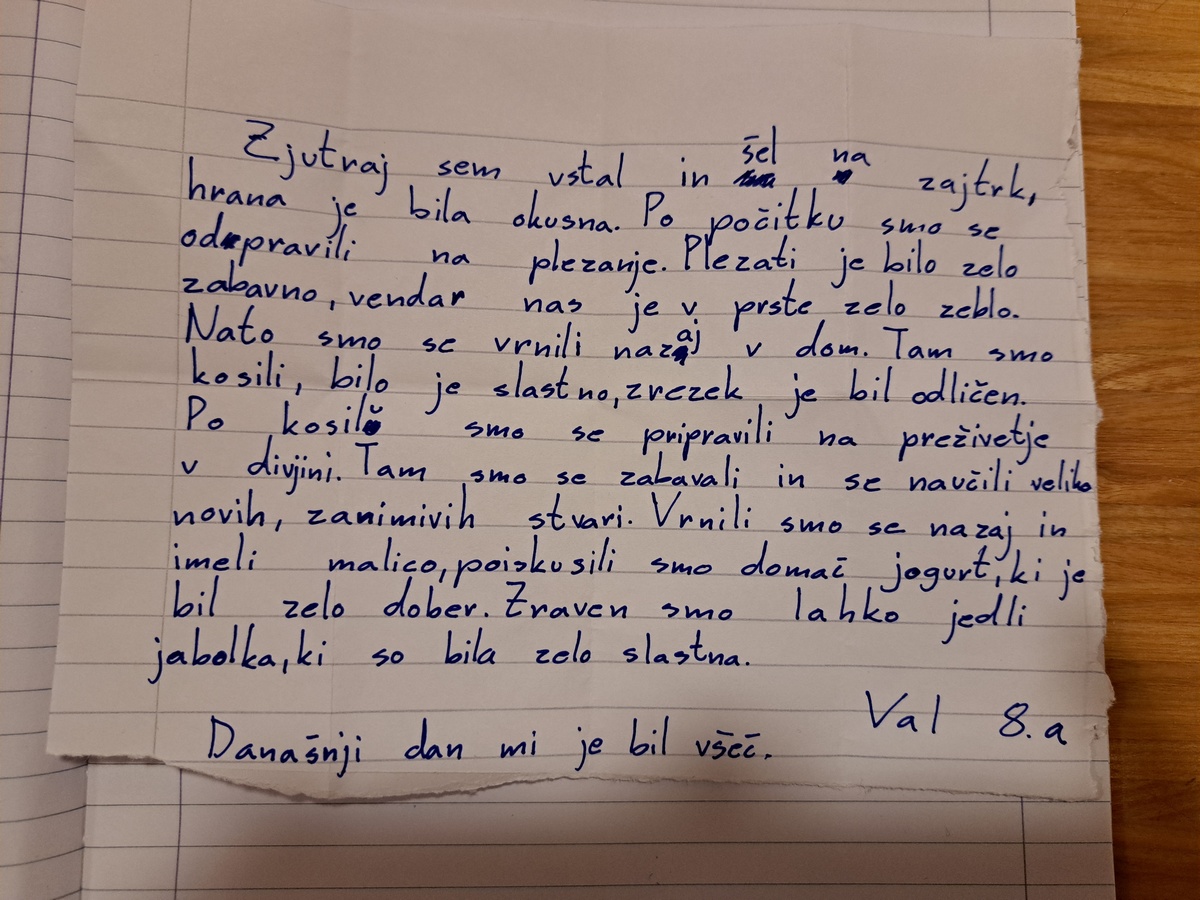 Zjutraj sem vstal in šel na zajtrk,
hrana je bila okusna. Po počitku smo se
odpravili na plezanje. Plezati je bilo zelo
zabavno, vendar nas je v prste zelo zeblo.
Nato smo se vrnili nazaj v dom. Tam smo
kosili, bilo je slastno, zrezek je bil odličen.
Po kosilu smo se pripravili na preživetje
v divjini. Tam smo se zabavali in se naučili veliko
novih, zanimivih stvari. Vrnili smo se nazaj in
imeli malico, poizkusili smo domač jogurt, ki je
bil zelo dober. Zraven smo lahko jedli
jabolka, ki so bila zelo slastna.
Val 8. a
Današnji dan mi je bil všeč.